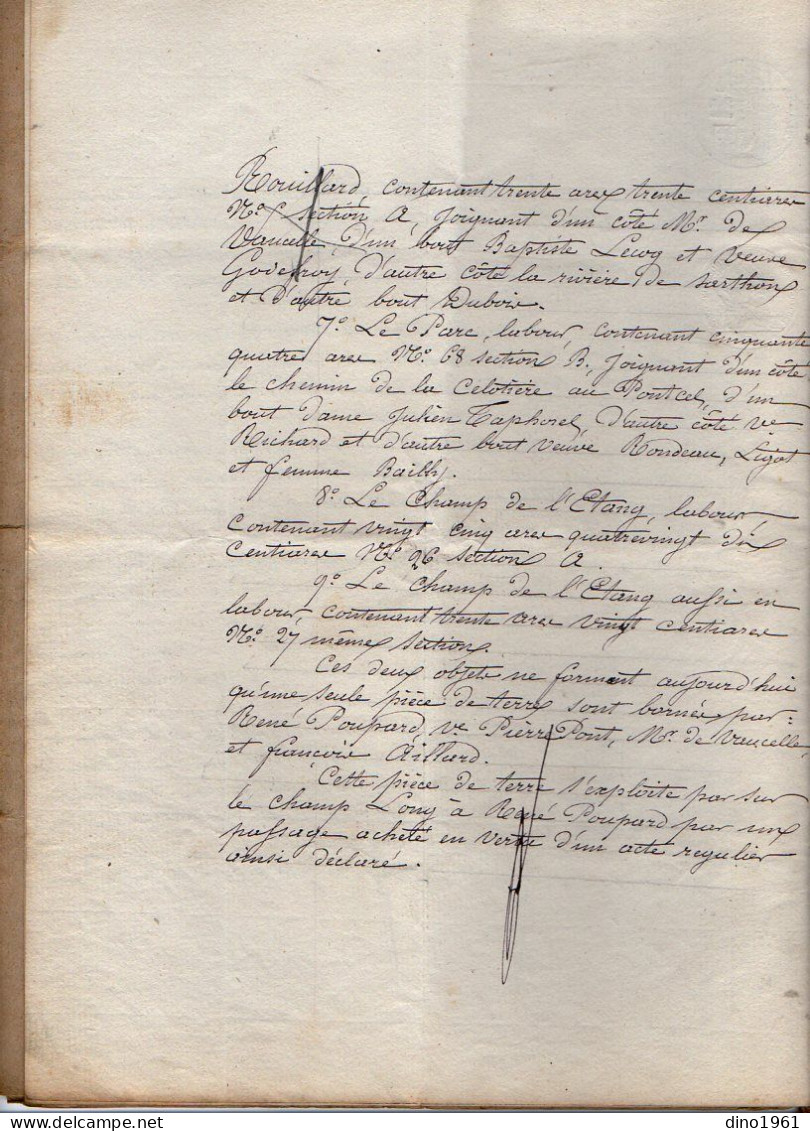 Rouillard, contenant trente ares trente centiares
Nº section A, Joignant d'un côté Mr. de
Vaucelle, d'un bout Baptiste Lecoq et veuve
Godefroy, d'autre côté la rivière de Sarthon
et d'autre bout Dubois.
7º Le Parc, labour, contenant cinquante
quatre ares Nº 68 section B, Joignant d'un côté
le chemin de la Celotière au Pontcel, d'un
bout dame Julien Taphorel, d'autre côté ve
Richard et d'autre bout veuve Rondeau, Ligot
et femme Bailly.
8º Le Champ de l'Etang, labour,
contenant vingt cinq ares quatrevingt dix
centiares Nº 26 section A.
9º Le Champ de l'Etang aussi en
labour, contenant trente ares vingt centiares
Nº 27 même section.
Ces deux objets ne forment aujourd'hui
qu'une seule pièce de terre sont bornées par:
René Poupard, ve Pierre Pont, Mr. de Vaucelle,
et françois Aillard.
Cette pièce de terre s'exploite par sur
le champ Long à René Poupard par un
passage acheté en vertu d'un acte regulier
ainsi déclaré.
dino1961